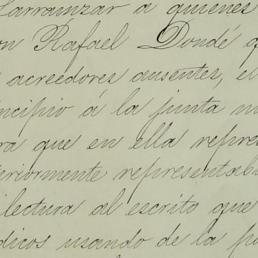 Larrainzar á quienes
on Rafael Dondé q
acreedores ausentes, el
ncipio á la junta m
ra que en ella repres
eriormente representab
lectura al escrito que
dicos usando de la p